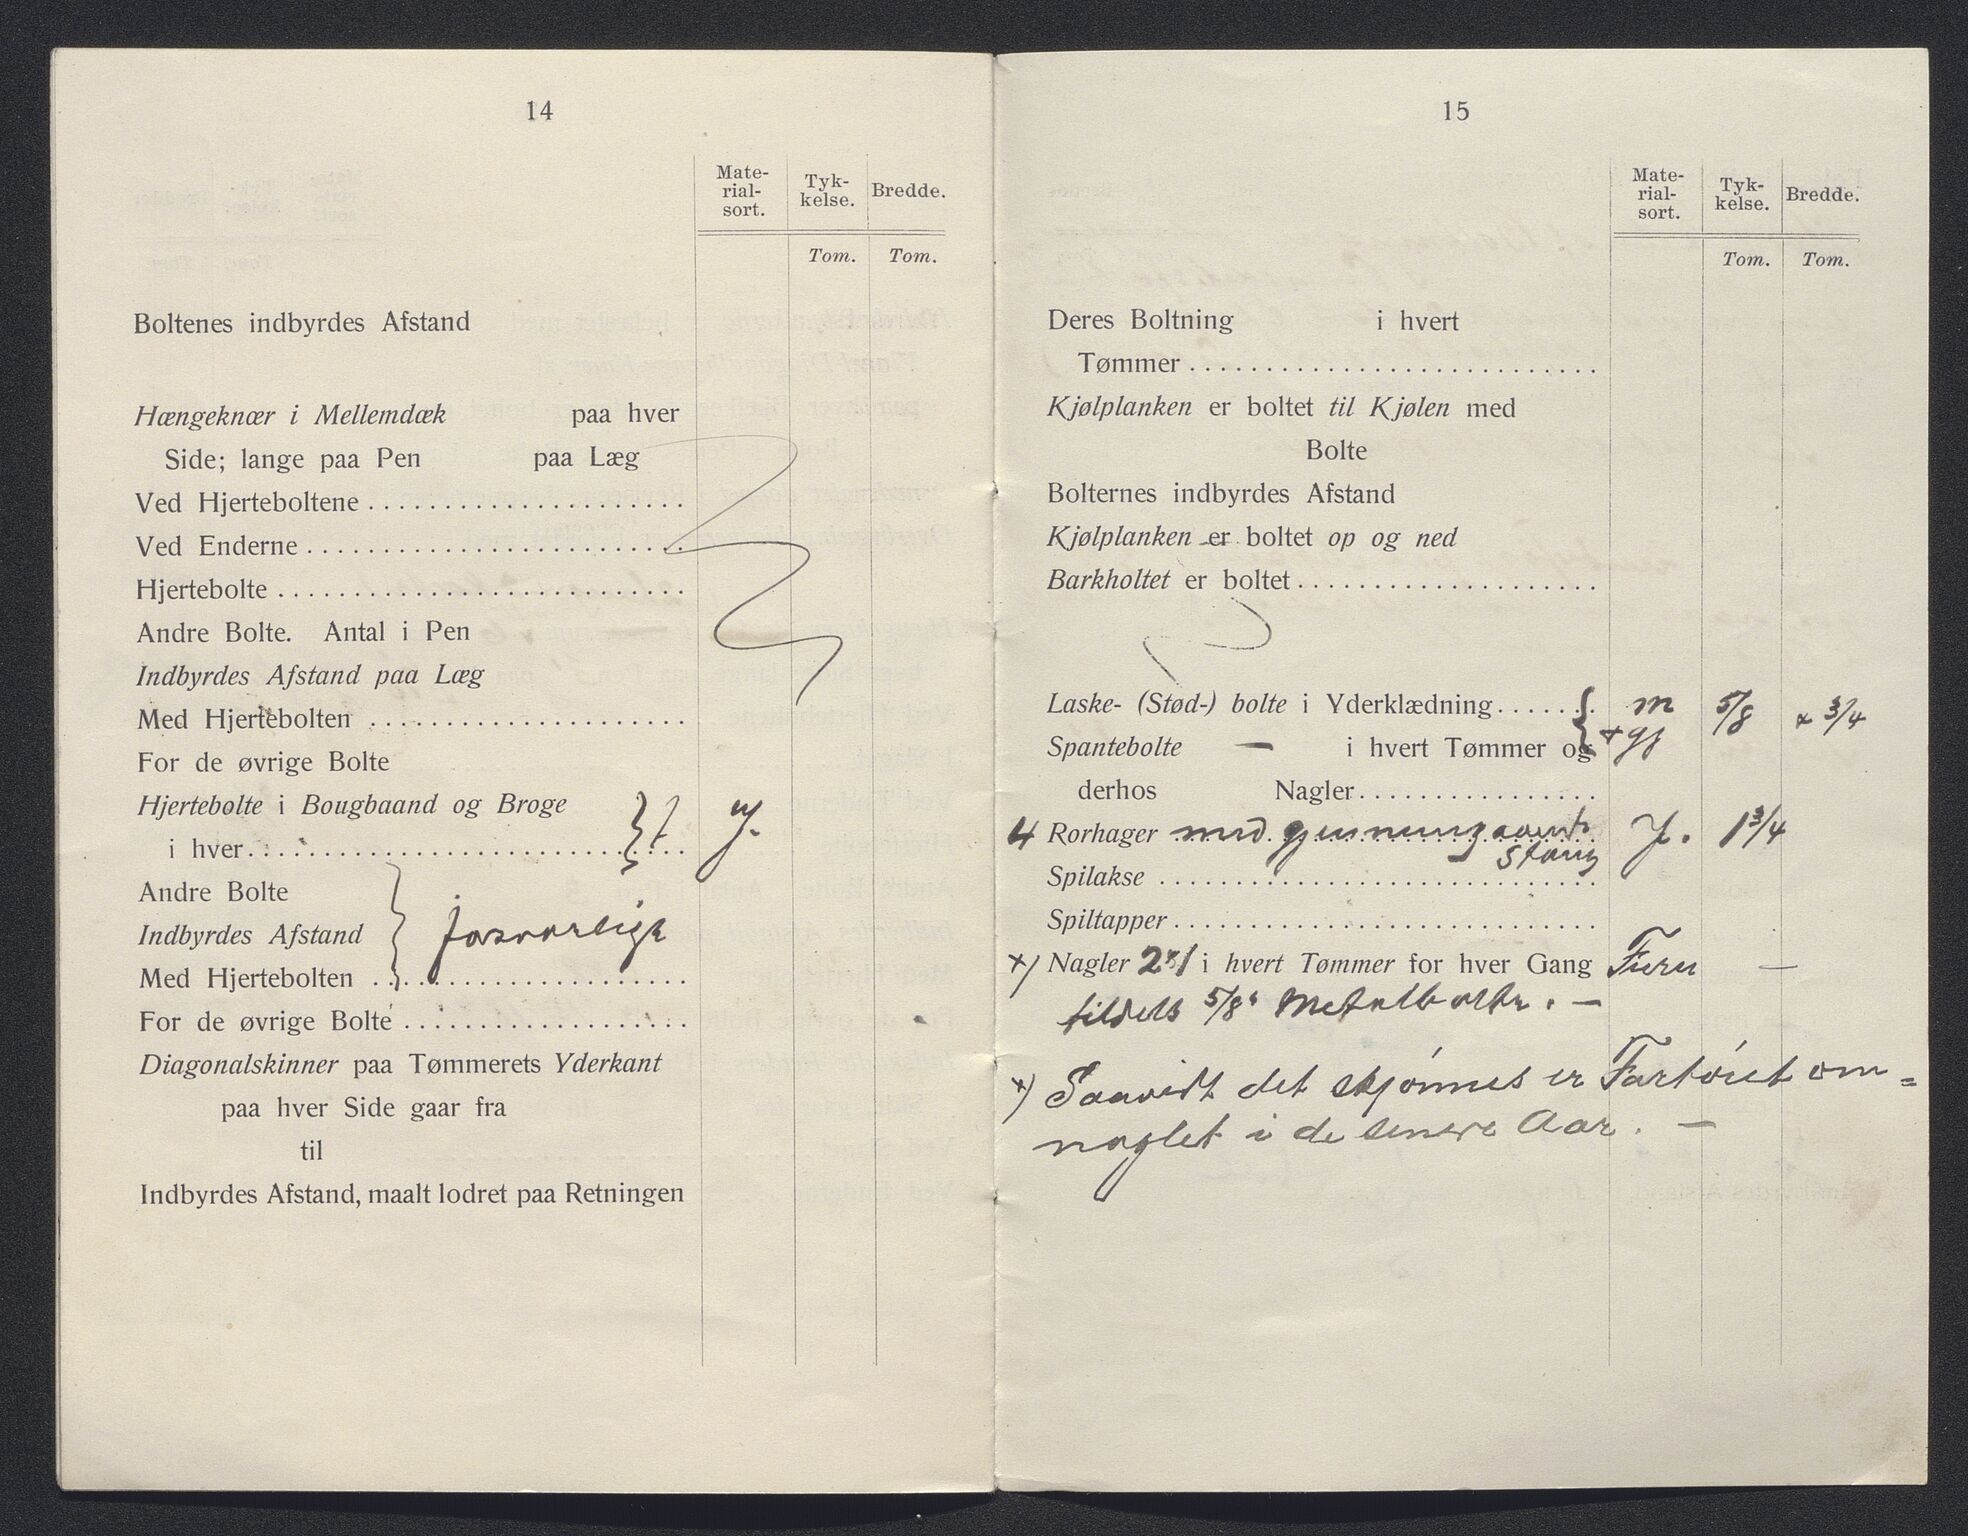 14
Mate-
rial-
sort.
Tyk-
kelse.
Bredde.
Tom.
Tom.
Boltenes indbyrdes Afstand
Hængeknær i Mellemdæk paa hver
Side; lange paa Pen paa Læg
Ved Hjerteboltene
Ved Enderne
Hjertebolte
Andre Bolte. Antal i Pen
Indbyrdes Afstand paa Læg
Med Hjertebolten
For de øvrige Bolte
Hjertebolte i Bougbaand og Broge
i hver
Andre Bolte
Indbyrdes Afstand forsvarlige
Med Hjertebolten
For de øvrige Bolte
Diagonalskinner paa Tømmerets Yderkant
paa hver Side gaar fra
til
Indbyrdes Afstand, maalt lodret paa Retningen
15
Mate-
rial-
sort.
Tyk-
kelse.
Bredde.
Tom.
Tom.
Deres Boltning i hvert
Tømmer
Kjølplanken er boltet til Kjølen med
Bolte
Bolternes indbyrdes Afstand
Kjølplanken er boltet op og ned
Barkholtet er boltet
Laske- (Stød-) bolte i Yderklædning m 5/8 x 3/4
Spantebolte — i hvert Tømmer og + gj
derhos Nagler
4 Rorhager med gjennemgaaende J. 1 3/4
stang
Spilakse
Spiltapper
x) Nagler 2 i hvert Tømmer for hver Gang Furu —
tildels 5/8" Metalbolte. —
x) Saavidt det skjønnes er Fartøiet om=
naglet i de senere Aar. —